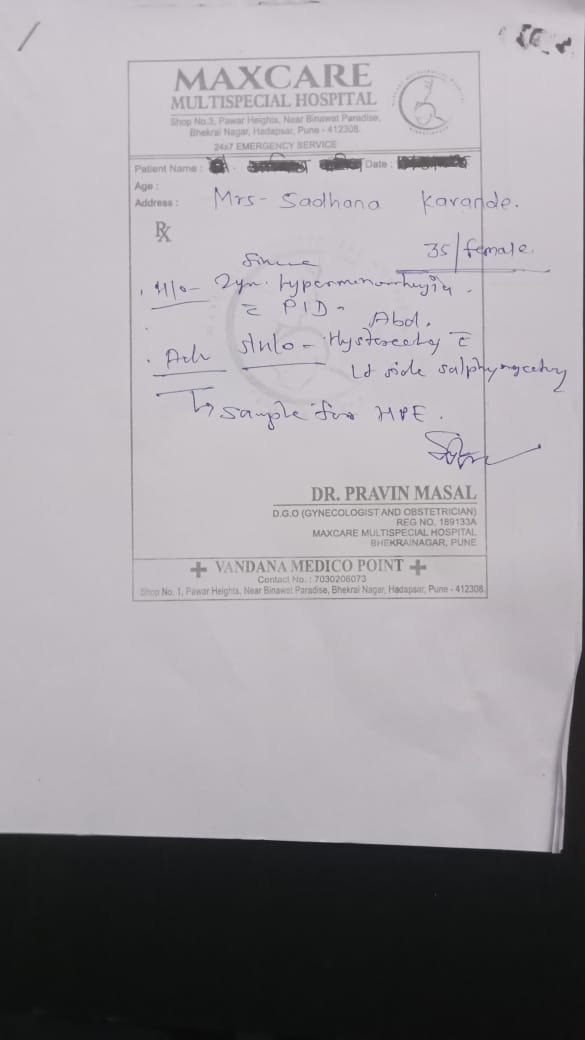 MAXCARE
MULTISPECIAL HOSPITAL
Shop No.3, Pawar Heights, Near Binawat Paradise,
Bhekrai Nagar, Hadapsar, Pune - 412308.
24x7 EMERGENCY SERVICE
Patient Name : Date :
Age :
Address : Mrs - Sadhana Karande.
Rx
35/female.
Since
H/o - 2yr. hypermenorrhegia.
c̄ PID -
Abd.
Adv Hysterectomy c̄
Lt side salphyngectomy
↳ Sample for HPE.
DR. PRAVIN MASAL
D.G.O (GYNECOLOGIST AND OBSTETRICIAN)
REG NO. 189133A
MAXCARE MULTISPECIAL HOSPITAL
BHEKRAINAGAR, PUNE
+ VANDANA MEDICO POINT +
Contact No. : 7030206073
Shop No. 1, Pawar Heights, Near Binawat Paradise, Bhekrai Nagar, Hadapsar, Pune - 412308.